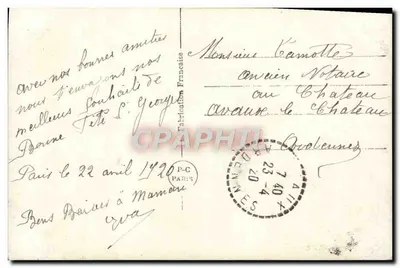 avec nos bonnes amitiés
nous t'envoyons nos
meilleurs souhaits de
Bonne Fête St Georges
Paris le 22 avril 1920
Bons Baisers à Maman
Fabrication Française
P-C
PARIS
Monsieur Camotte
ancien Notaire
au Chateau
avaux le Chateau
Ardennes
CPAPHIL
7 40
23 -4
20
ARDENNES